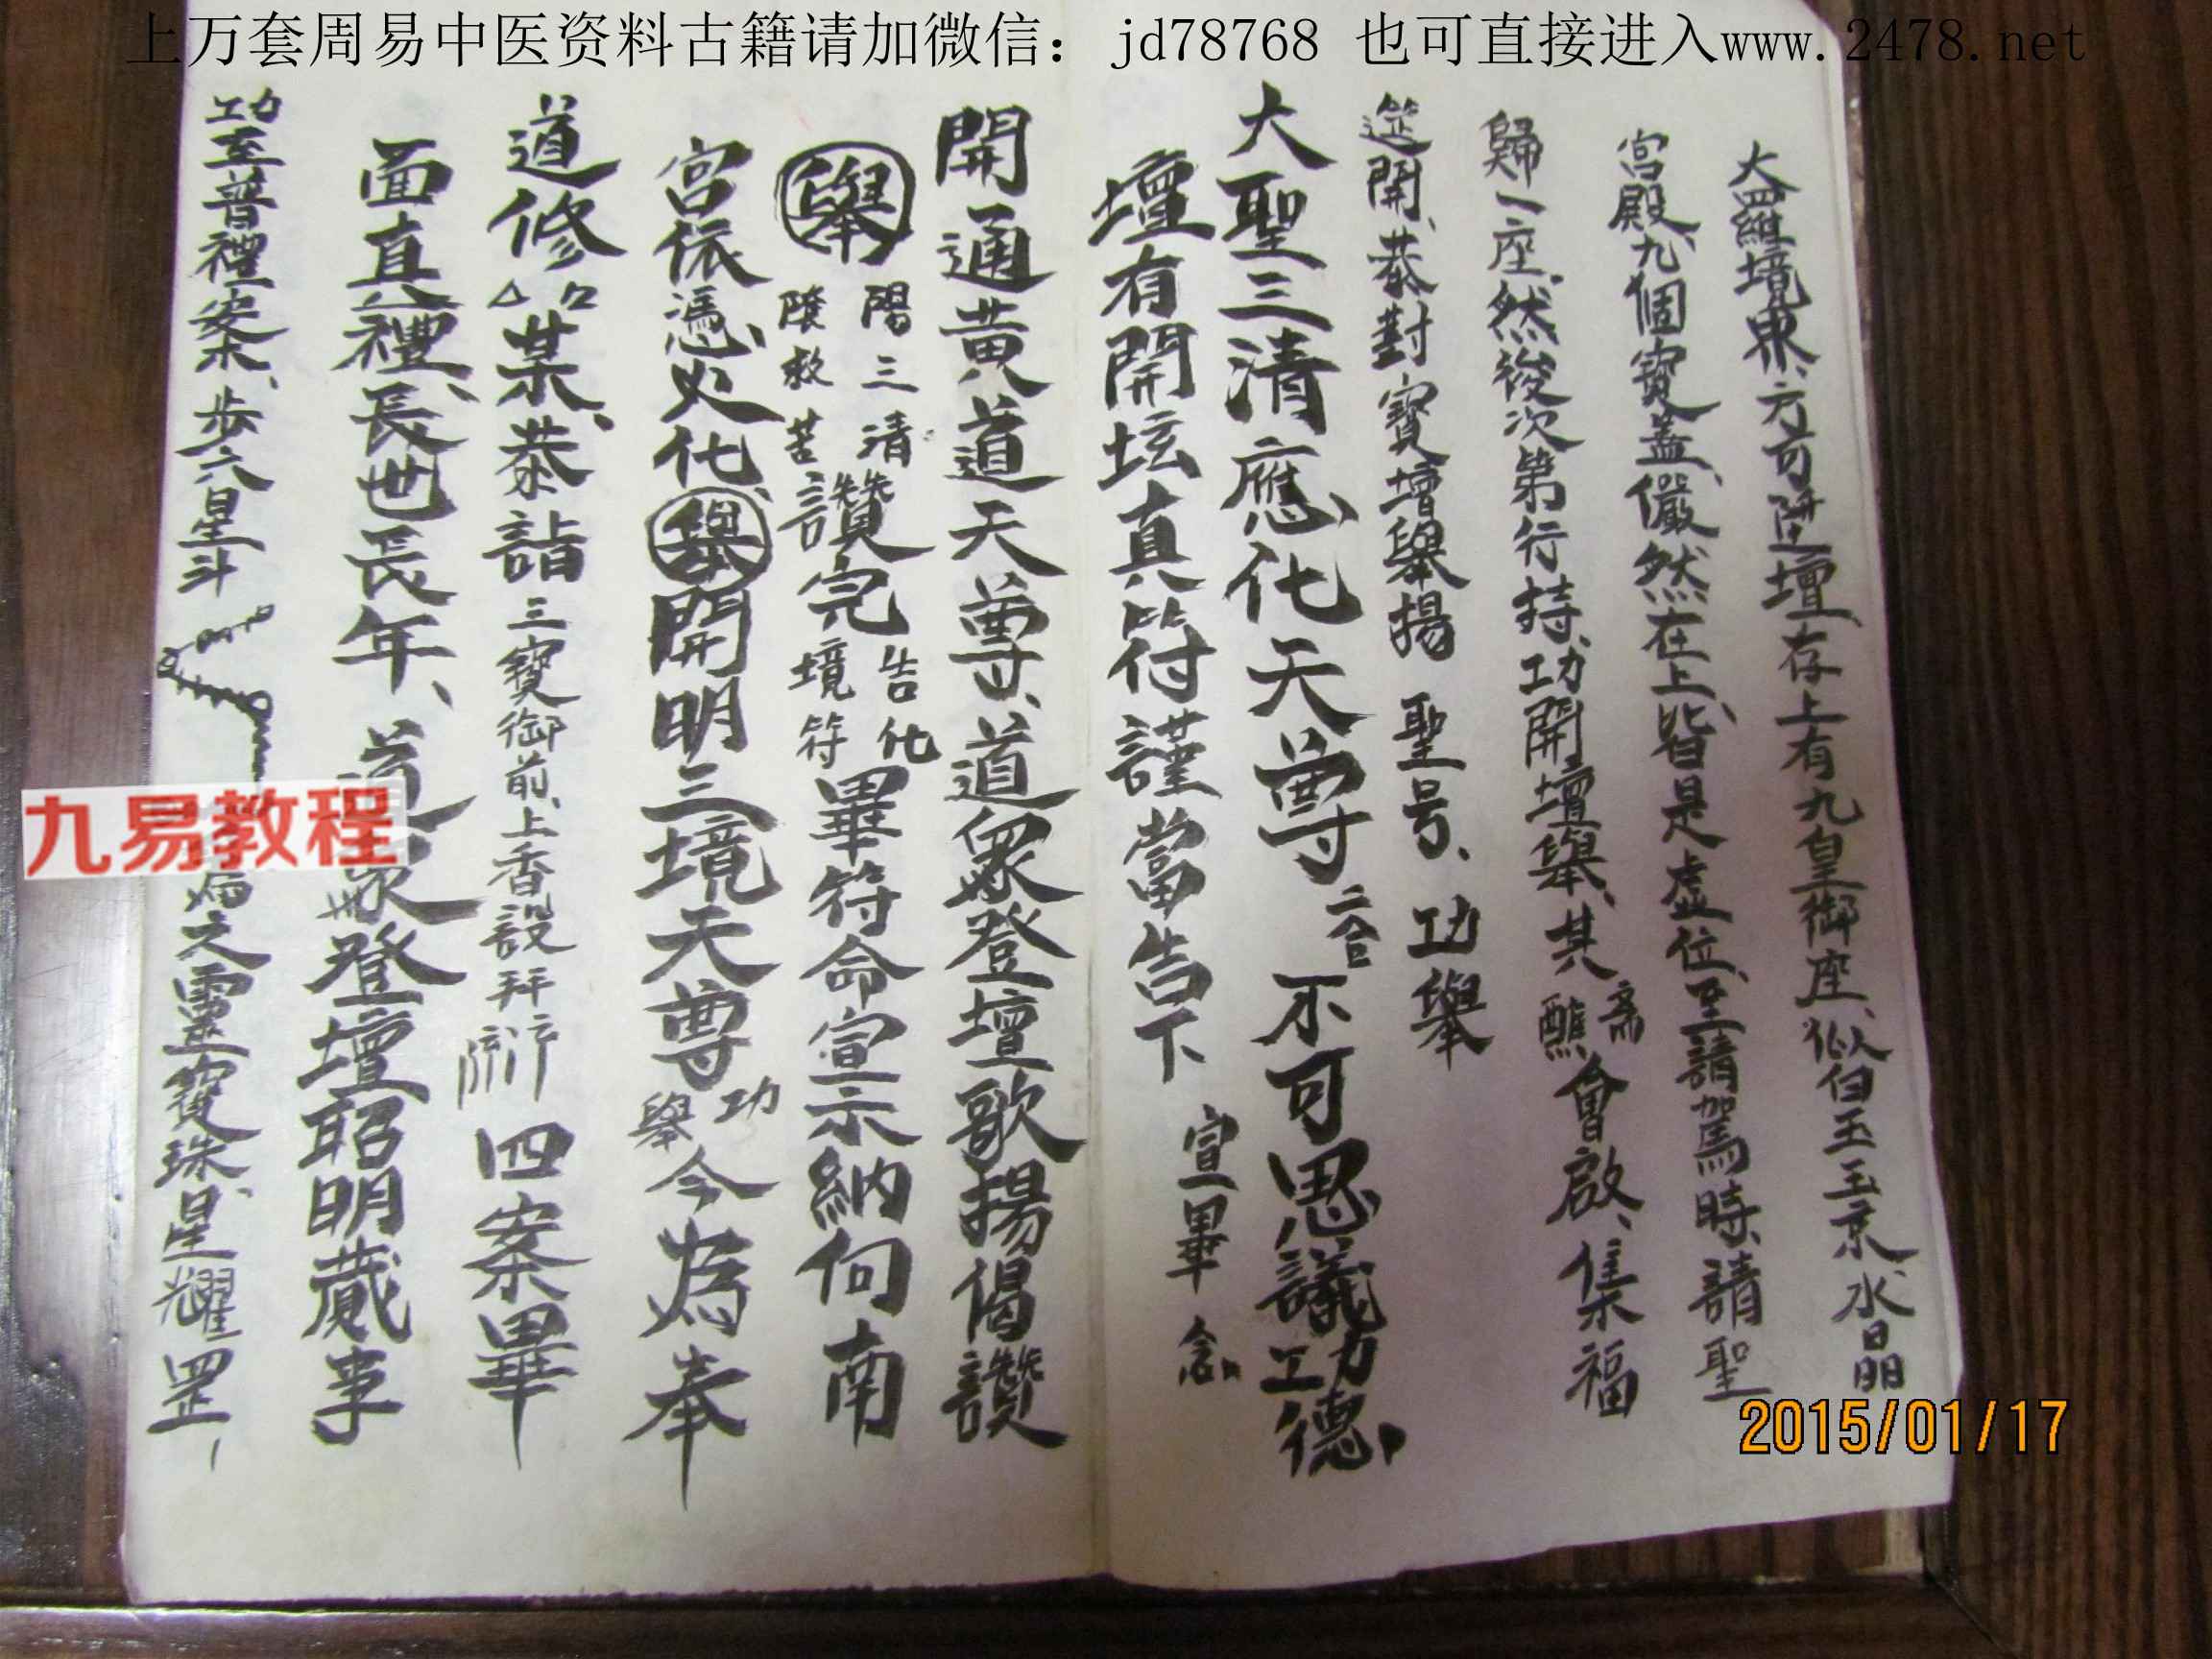 上万套周易中医资料古籍请加微信：jd78768 也可直接进入www.2478.net
大羅境界、方可陞壇、存上有九皇御座、似白玉玉京、水晶
宫殿、九個寳蓋、儼然在上、皆是虚位、至請駕時、請聖
歸一座、然後次第行持、功開壇舉、其斋醮會啟、集福
筵開、恭對寳壇舉揚 聖号、功舉
大聖三清應化天尊 不可思議功德、
壇有開坛真符謹當告下 宣畢 念
開通黄道天尊、道衆登壇歌揚偈讚
舉 陽三清 救苦 讚完 告化境符 畢符命宣示納向南
宫依憑火化、舉開明三境天尊 功舉 今為奉
道修 某、恭詣 三寳御前、上香設拜 四案畢
面真禮、長世長年、道衆登壇昭明蕆事
功至普禮案、步六星斗
之靈寳珠、星耀罡、
九易教程
2015/01/17